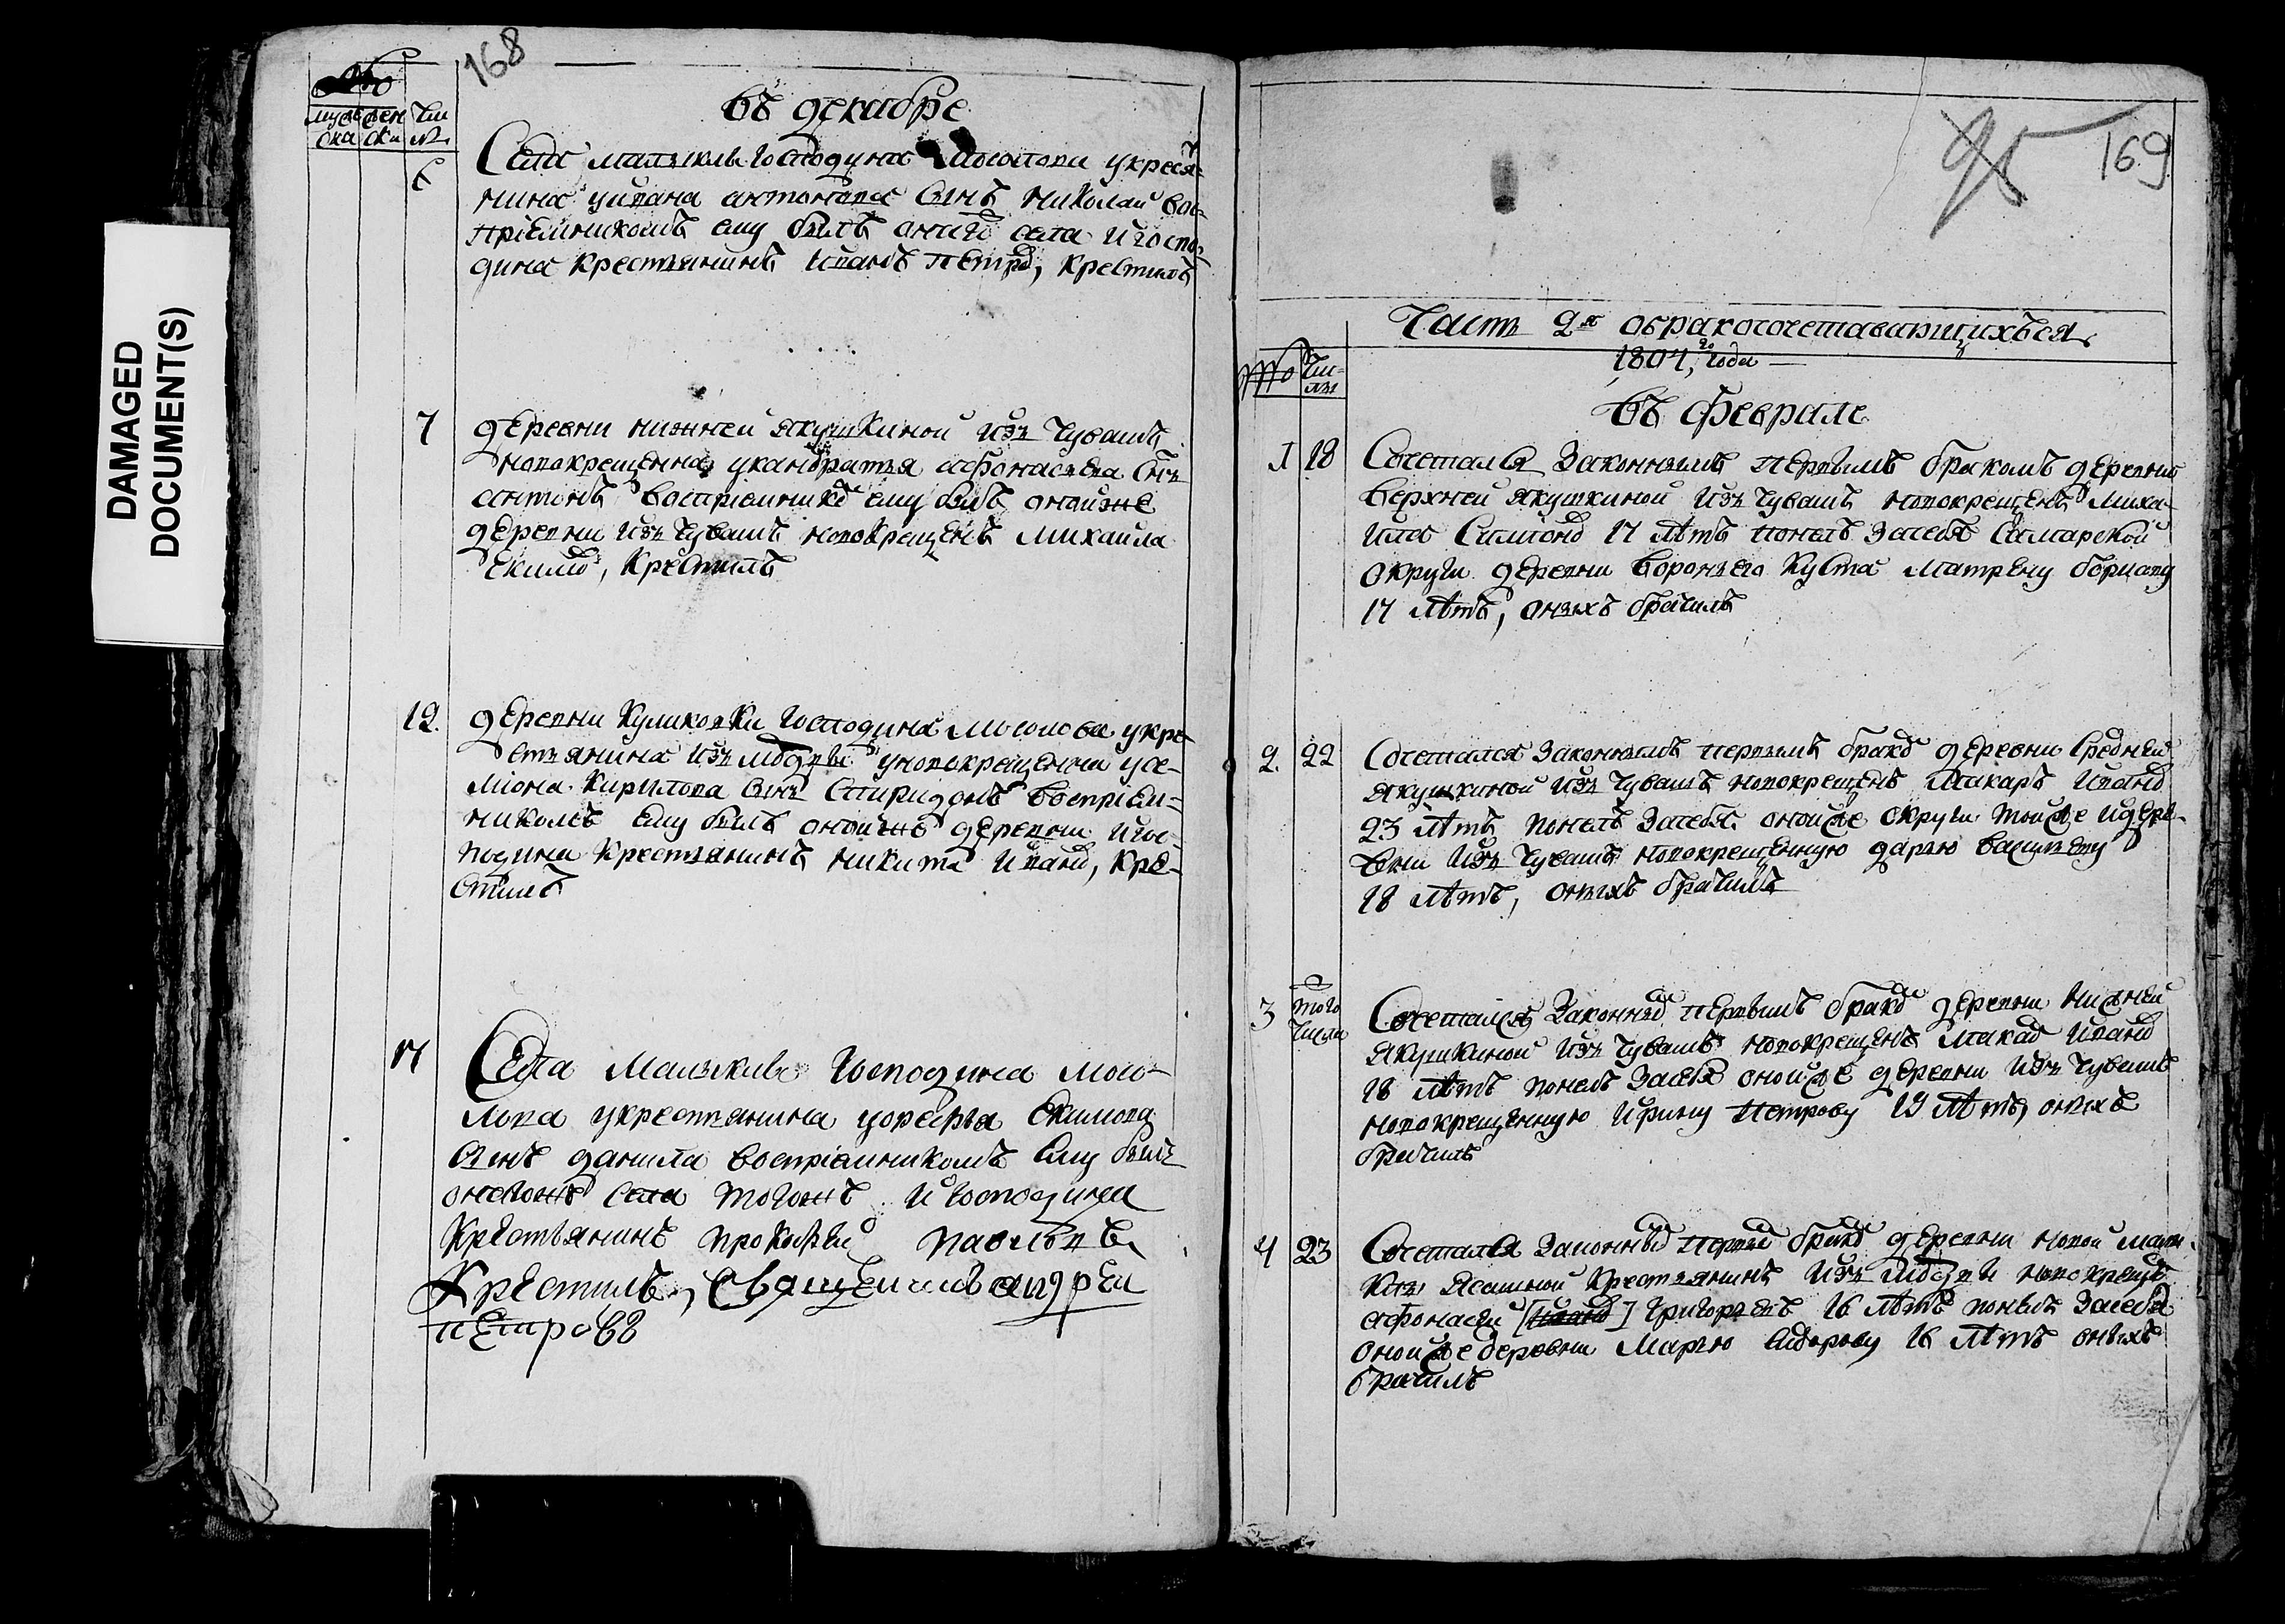 DAMAGED
DOCUMENT(S)
168
муже
ска
жен
ски
Чи
сл
въ декабре
6
Села малыклы господина укрестя=
нина уивана антонова сынъ николаи вос=
пріемникомъ ему былъ оногожъ села игоспо=
дина крестьянинъ иванъ петро, крестилъ
7
деревни нижней якушкиной изъ чувашъ
новокрещенна уканъдратья афонасьева снъ
антипъ воспріемнико ему былъ онойже
деревни изъ чувашъ новокрещенъ михаила
екимо, крестилъ
12.
деревни куликовки господина мосолова укре
стьянина измордвы уновокрещенни усе-
міона кирилова снъ спиридонъ воспріем=
никомъ ему былъ онойже деревни игос-
подина крестьянинъ никита ивано, кре-
стилъ
17
Села малыклы господина мосо-
лова укрестьянина уорефья екимова
сынъ данила воспріемникомъ ему былъ
оногожъ села тогожъ игосподина
крестьянинъ прокофеи павловъ,
крестилъ, священникъ андреи
петровъ
95
169
Часть 2я обракосочетавающихъся,
1804, го года —
Чи-
слы
въ феврале
1 18
Сочетался законнымъ первымъ бракомъ деревни
верхней якушкиной изъ чувашъ новокрещенъ миха-
ила симіоно 17 лѣтъ понелъ засебя самарской
округи деревни вороньего куста матрену борисову
17 лѣтъ, оныхъ брачилъ
2. 22
Сочетался законнымъ первымъ брако деревни средней
якушкиной изъ чувашъ новокрещенъ макаръ ивано
23 лѣтъ понелъ засебя онойже округи тойже идере-
вни изъ чувашъ новокрещенную дарью васильеву
18 лѣтъ, оныхъ брачилъ
3 того
числа
Сочетался законны первымъ брако деревни нижней
якушкиной изъ чувашъ новокрещенъ макаръ ивано
18 лѣтъ понелъ засебя онойже деревни изъ чувашъ
новокрещенную ирину петрову 19 лѣтъ, оныхъ
брачилъ
4 23
Сочетался законны первы брако деревни новой малы
клы ясашной крестьянинъ изъ мордвы новокреще
афонасеи [ивано] григорьевъ 16 лѣтъ понелъ засебя
онойже деревни марью сидорову 16 лѣтъ оныхъ
брачилъ